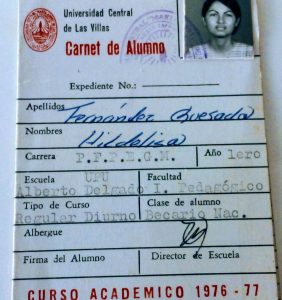 Universidad Central
de Las Villas
Carnet de Alumno
Expediente No.:
Apellidos Fernández Quesada
Nombres Hildelisa
Carrera P.F.P.E.G.M. Año 1ero
Escuela UFU Facultad
Alberto Delgado I. Pedagógico
Tipo de Curso Clase de alumno
Regular Diurno Becario Nac.
Albergue
Firma del Alumno Director de Escuela
CURSO ACADEMICO 1976 - 77